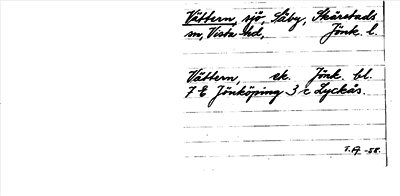 Vättern, sjö, Säby, Skärstads
sn, Vista hd, Jönk. l.
Vättern, ek. Jönk. bl.
7 E Jönköping 3 c Lyckås.
-58.